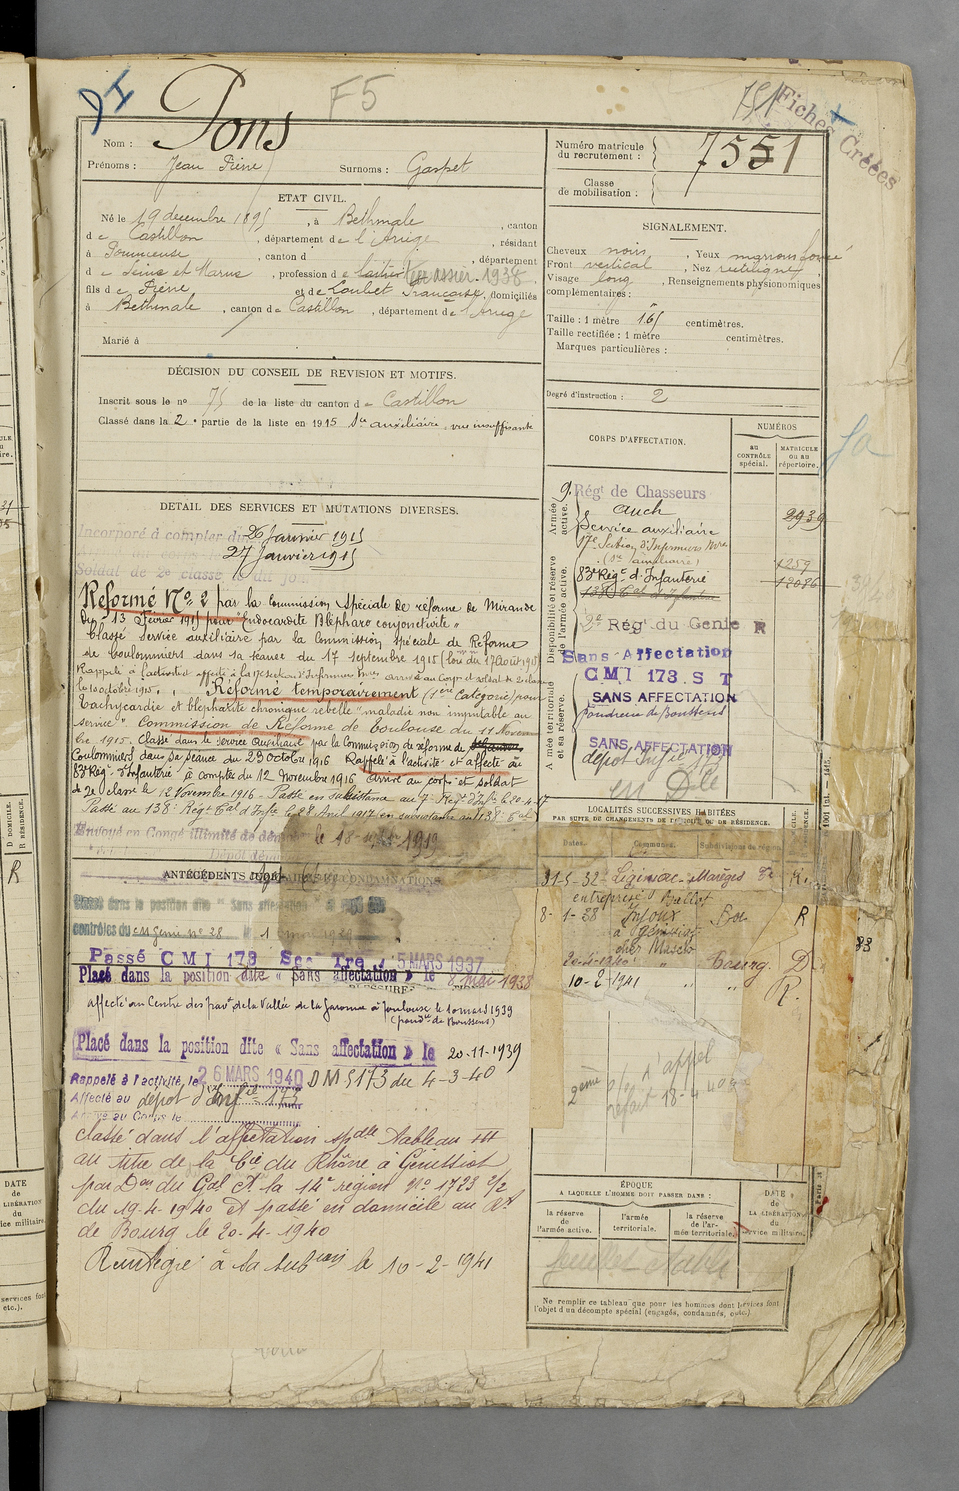 F5
751
Fiches Créées
Nom : Pons
Prénoms : Jean Pierre Surnoms : Gaspet
ETAT CIVIL.
Né le 19 décembre 1895, à Bethmale, canton
de Castillon, département de l'Ariège, résidant
à Pommeuse, canton d , département
de Seine et Marne, profession de laitier 1938
fils de Pierre et de Loubet Françoise, domiciliés
à Bethmale, canton de Castillon, département de l'Ariège
Marié à
DÉCISION DU CONSEIL DE REVISION ET MOTIFS.
Inscrit sous le no 75 de la liste du canton de Castillon
Classé dans la 2e partie de la liste en 1915 Sce auxiliaire, vue insuffisante
DETAIL DES SERVICES ET MUTATIONS DIVERSES.
Incorporé à compter du 26 Janvier 1915
27 Janvier 1915
Soldat de 2e classe le dit jour
Réformé No 2 par la Commission Spéciale de réforme de Mirande
du 13 Février 1915 pour "Endocardite Blépharo conjonctivite"
Classé Service auxiliaire par la Commission spéciale de Réforme
de Coulommiers dans sa séance du 17 septembre 1915
le 10 octobre 1915. Réformé temporairement (1ère Catégorie) pour
Tachycardie et blépharite chronique rebelle "maladie non imputable au
service". Commission de Réforme de Toulouse du 11 Novem-
bre 1915. Classé dans le Service Auxiliaire par la Commission de réforme de
Coulommiers dans sa séance du 23 octobre 1916 Rappelé à l'activité et affecté au
83e Rég. d'Infanterie à compter du 12 Novembre 1916 arrivé au corps et soldat
de 2e classe le 12 Novembre 1916 - Passé en subsistance au 7e Régt d'Inf. le 20-4-17
Passé au 138e Rég. d'Infie le 28 Avril 1917 en subsistance au 138e
Envoyé en Congé illimité de
1919
ANTÉCÉDENTS JUDICIAIRES ET CONDAMNATIONS
Classé dans la position dite " Sans affectation "
contrôles du CM Genie no 28
Passé CMI 173 15 MARS 1937
Placé dans la position dite « Sans affectation » le 8 Mai 1938
affecté au Centre des pav. de la Vallée de la Garonne à Toulouse le 10 mars 1939
(poudrie de Boussens)
Placé dans la position dite « Sans affectation » le 20-11-1939
Rappelé à l'activité, le 26 MARS 1940 DM 5173 du 4-3-40
Affecté au depot d'Infie 173
Arrivé au Corps le
classé dans l'affectation spdle Tableau III
au titre de la Cie du Rhône à Génissiat
par Don du Gal Ct la 14e région No 1723 2/2
du 19-4-1940 et passé en domicile au Rt
de Bourg le 20-4-1940
Réintégré à la subon le 10-2-1941
Numéro matricule
du recrutement : 7551
Classe
de mobilisation :
SIGNALEMENT.
Cheveux noirs, Yeux marron foncé
Front vertical, Nez rectiligne
Visage long, Renseignements physionomiques
complémentaires :
Taille : 1 mètre 65 centimètres.
Taille rectifiée : 1 mètre centimètres.
Marques particulières :
Degré d'instruction : 2
CORPS D'AFFECTATION.
NUMÉROS
au
CONTRÔLE
spécial.
MATRICULE
ou au
répertoire.
Armée
active.
9. Régt de Chasseurs
Auch 2939
Service auxiliaire
17e Section d'Infirmiers Mres
(Sce auxiliaire) 1259
Disponibilité et réserve
de l'armée active.
83e Rég. d'Infanterie 12086
2e Régt du Genie R
Sans Affectation
CMI 173. S T
Armée territoriale
et sa réserve.
SANS AFFECTATION
Poudrerie de Boussens
SANS AFFECTATION
dépot Infie 173
en Dlle
LOCALITÉS SUCCESSIVES HABITÉES
PAR SUITE DE CHANGEMENTS DE DOMICILE OU DE RÉSIDENCE.
Dates. Communes. Subdivisions de région.
31-5-32 Liginiac - Marèges R.
entreprise Ballot
8-1-38 Injoux R
à Génissiat
chez Mascio
20-4-1940 " Bourg. D
10-2-1941 " " R.
2ème appel
refait 18-4-40
ÉPOQUE
A LAQUELLE L'HOMME DOIT PASSER DANS :
la réserve
de
l'armée active.
l'armée
territoriale.
la réserve
de l'ar-
mée territoriale.
DATE
de
LA LIBÉRATION
du
service militaire.
Ne remplir ce tableau que pour les hommes dont les services font
l'objet d'un décompte spécial (engagés, condamnés, etc.).
R
DATE
de
LA LIBÉRATION
du